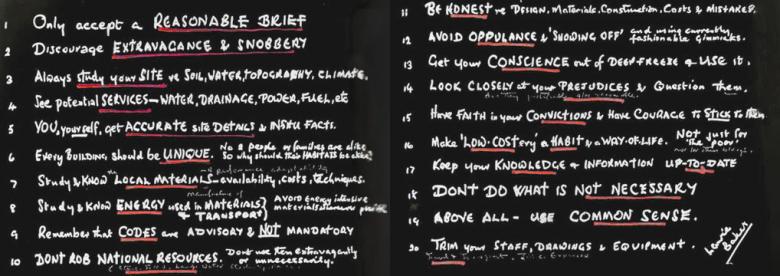 1 Only accept a REASONABLE BRIEF
2 Discourage EXTRAVAGANCE & SNOBBERY
3 Always study your SITE re SOIL, WATER, TOPOGRAPHY, CLIMATE.
4 See potential SERVICES – WATER, DRAINAGE, POWER, FUEL, etc
5 YOU, yourself, get ACCURATE site DETAILS & FACTS.
6 Every Building should be UNIQUE. No 2 people or families are alike
so why should their HABITATS be alike?
7 Study & Know the LOCAL MATERIALS – availability, costs, techniques.
8 Study & Know ENERGY used in MATERIALS & TRANSPORT AVOID Energy intensive
materials
9 Remember that CODES are ADVISORY & NOT MANDATORY
10 DONT ROB NATIONAL RESOURCES. Dont use them extravagantly
or unnecessarily.
11 BE HONEST re DESIGN, Materials, Construction, Costs & MISTAKES.
12 AVOID OPPULANCE & 'SHOWING OFF' and using currently
fashionable Gimmicks.
13 Get your CONSCIENCE out of DEEP FREEZE & USE it.
14 LOOK CLOSELY at your PREJUDICES & Question them.
15 Have FAITH in your CONVICTIONS & Have COURAGE TO STICK to them
16 Make 'LOW-COSTery' a HABIT & a WAY-OF-LIFE. Not just for
'the poor'
17 Keep your KNOWLEDGE & INFORMATION UP-TO-DATE
18 DON'T DO WHAT IS NOT NECESSARY
19 ABOVE ALL – USE COMMON SENSE.
20 TRIM your STAFF, DRAWINGS & EQUIPMENT.
Laurie
Baker